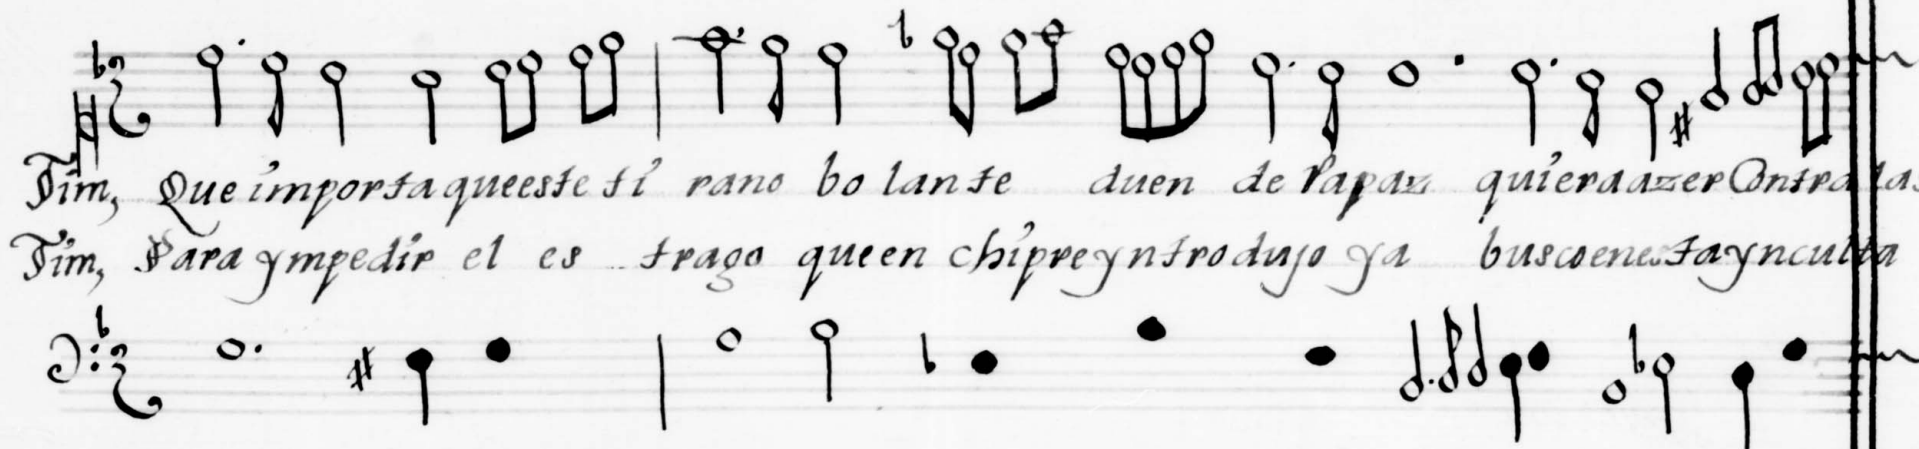 Tim, Que importa queeste ti rano bo lante duen de Rapaz quieraazer Contra las
Tim, Para ympedir el es trago queen chipreyntrodujo ya buscoenestaynculta